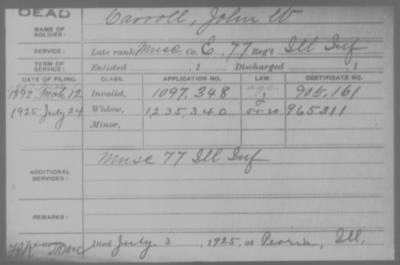 DEAD
NAME OF SOLDIER: Carroll, John W
SERVICE: Late rank Musc Co. E, 77 Reg't Ill Inf
TERM OF SERVICE: Enlisted , 1 Discharged , 1
DATE OF FILING. CLASS. APPLICATION NO. LAW. CERTIFICATE NO.
1892 Mch 12 Invalid, 1097,348 905,161
1925 July 24 Widow, 1,235,340 965211
Minor,
ADDITIONAL SERVICES: Musc 77 Ill Inf
REMARKS:
Died July 3, 1925, at Peoria, Ill.